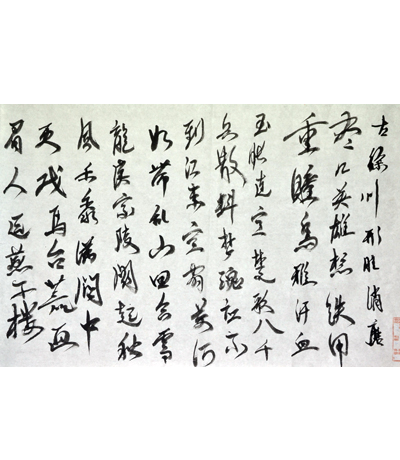 古徐州形胜消磨
尽几英雄想铁甲
重瞳乌骓汗血
玉帐连空楚歌八千
兵散料梦魂应不
到江东空有黄河
如带乱山回合雲
龍漢家陵闕起秋
風禾黍满關中
更戏马台荒画
眉人远燕子楼